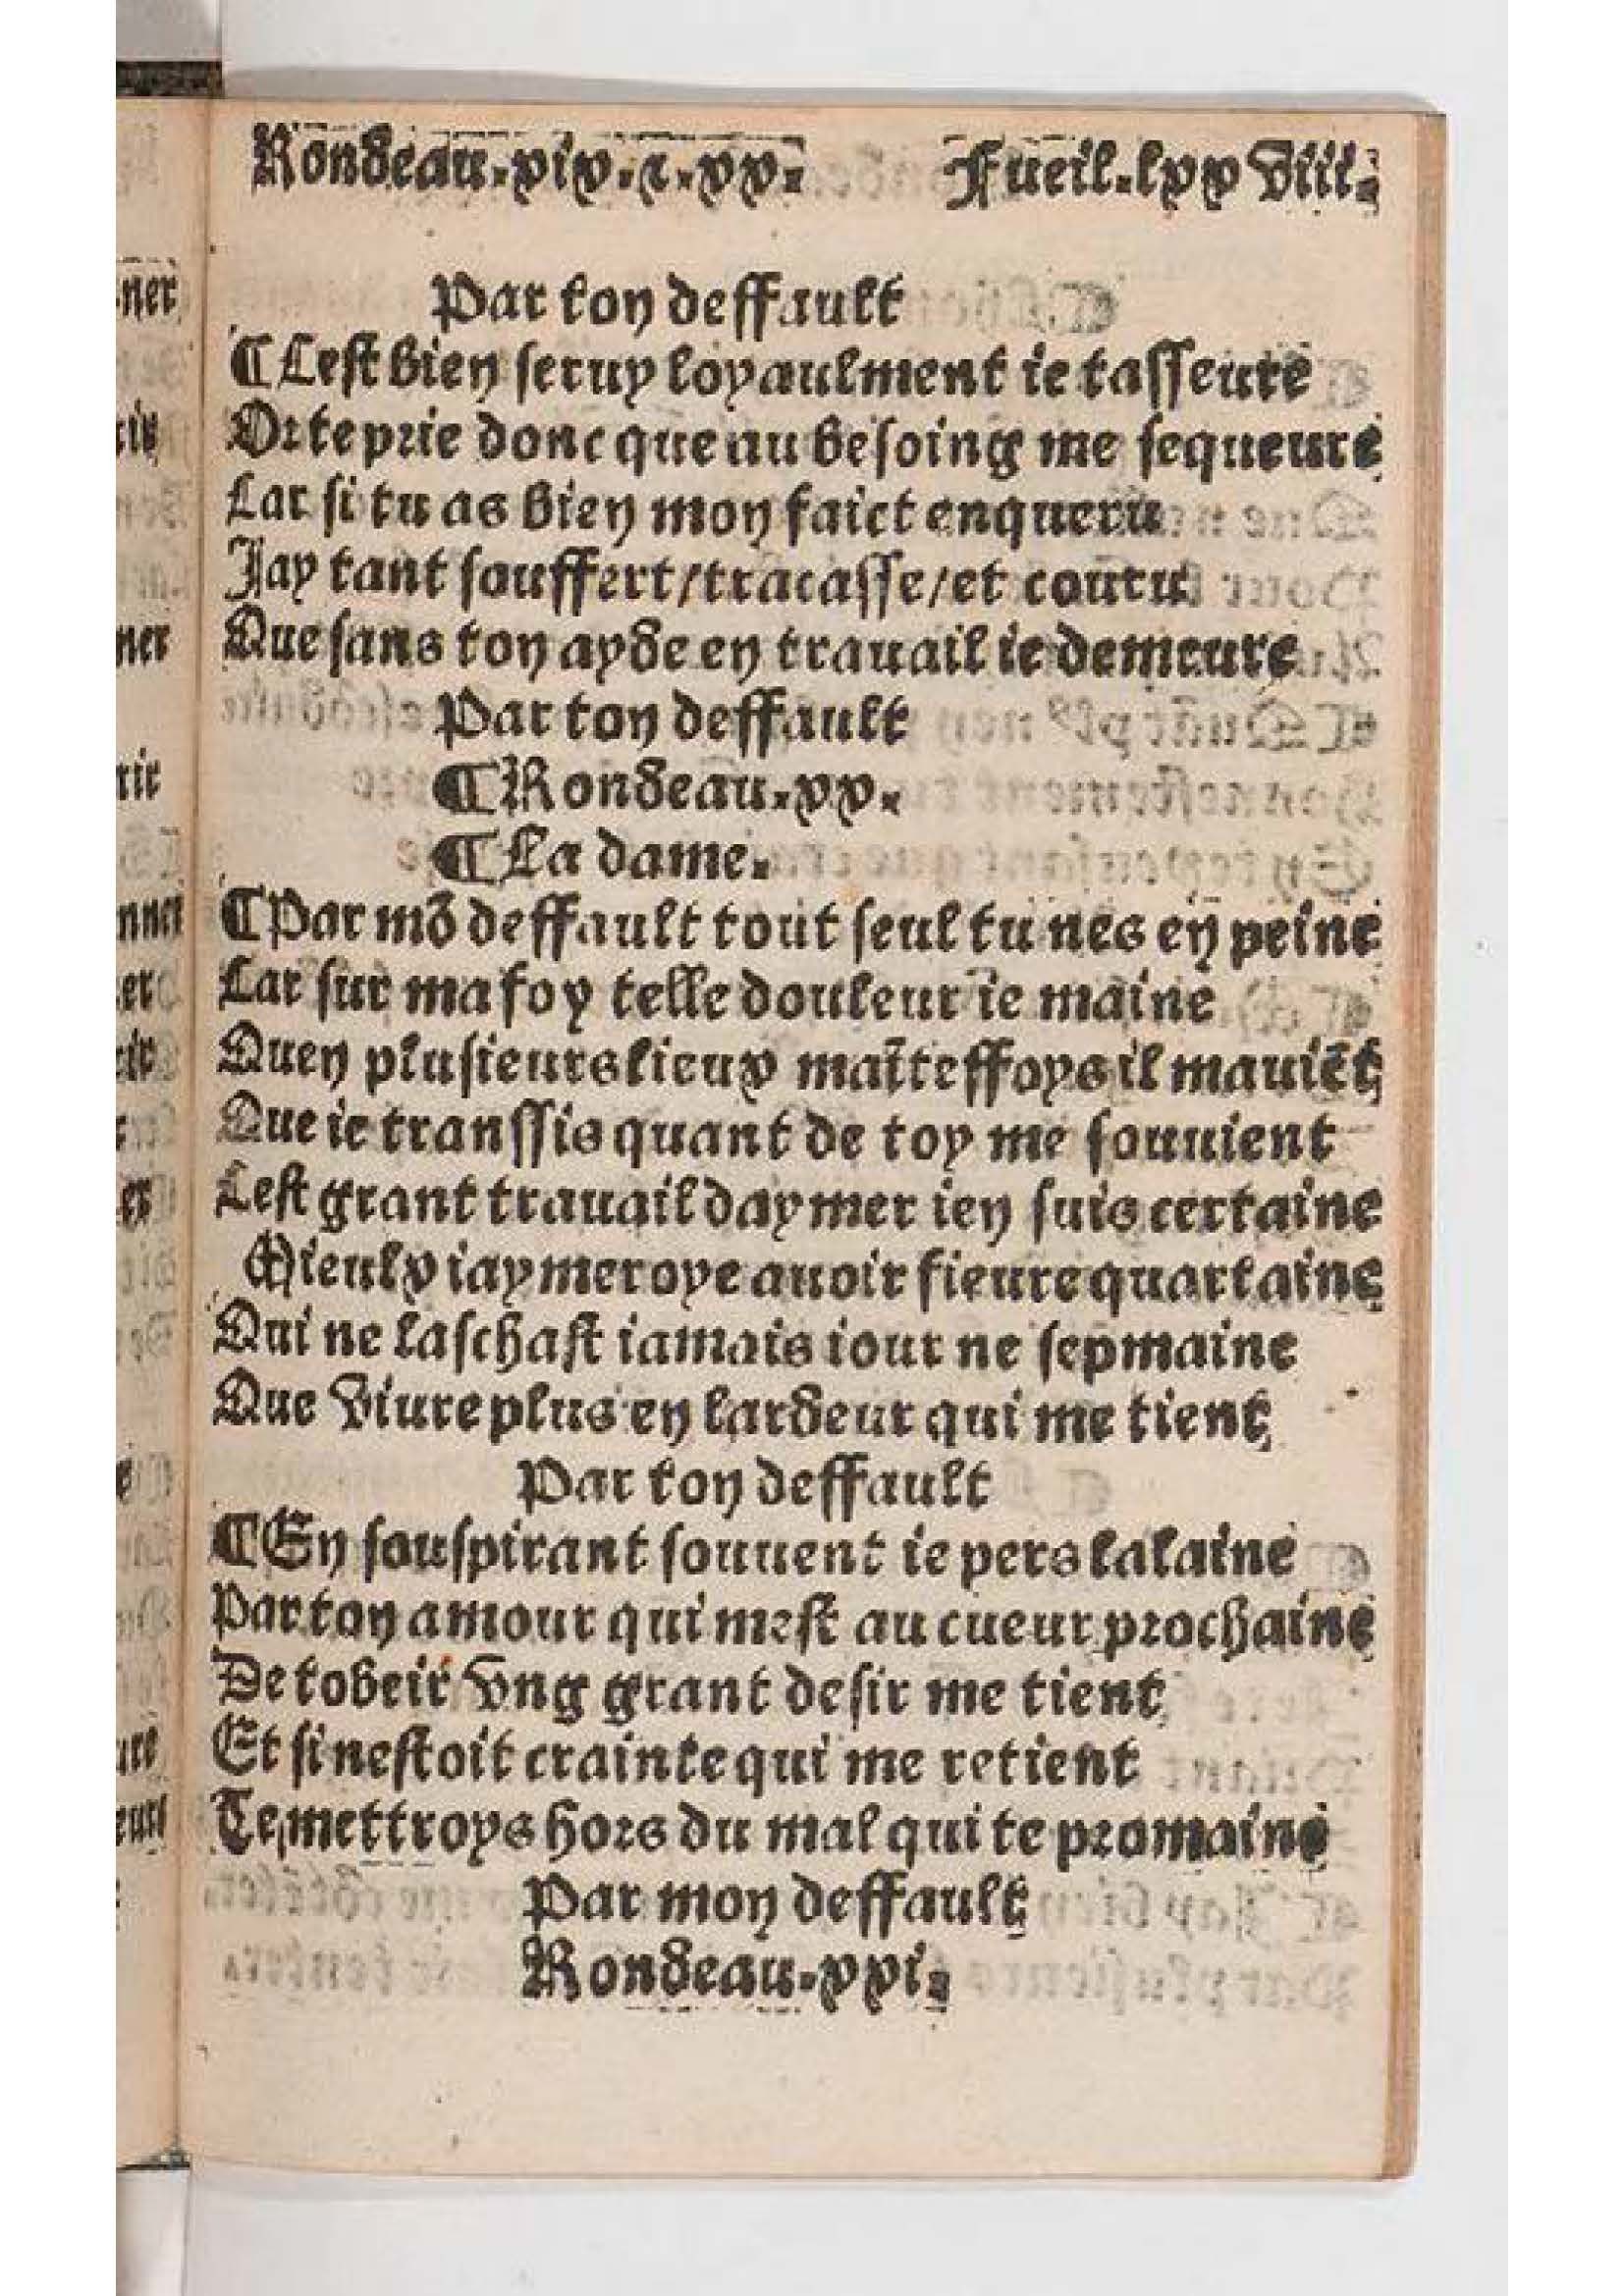 Rondeau.xix.⁊.xx. Fueil.lxxviii.
Par ton deffault
¶Cest bien seruy loyaulment ie tasseure
Or te prie donc que au besoing me sequeure
Car si tu as bien mon faict enqueru
Jay tant souffert/tracasse/et couru
Que sans ton ayde en trauail ie demeure
Par ton deffault
¶Rondeau.xx.
¶La dame.
¶Par mõ deffault tout seul tu nes en peine
Car sur ma foy telle douleur ie maine
Quen plusieurs lieux maĩteffoys il mauiẽt
Que ie transsis quant de toy me souuient
Cest grant trauail daymer ien suis certaine
Mieulx iaymeroye auoir fieure quartaine
Qui ne laschast iamais iour ne sepmaine
Que viure plus en lardeur qui me tient
Par ton deffault
¶En souspirant souuent ie pers lalaine
Par ton amour qui mest au cueur prochaine
De tobeir vng grant desir me tient
Et si nestoit crainte qui me retient
Te mettroys hors du mal qui te promaine
Par mon deffault
Rondeau.xxi.
ner
nner
er
er